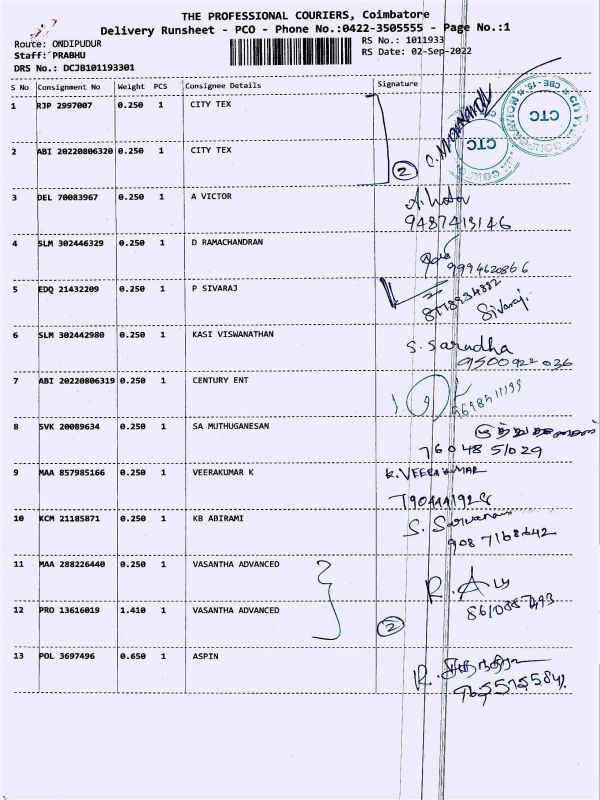 THE PROFESSIONAL COURIERS, Coimbatore
Delivery Runsheet - PCO - Phone No.:0422-3505555 - Page No.:1
Route: ONDIPUDUR
RS No.: 1011933
Staff: PRABHU
RS Date: 02-Sep-2022
DRS No.: DCJB101193301
S No Consignment No Weight PCS Consignee Details Signature
1 RJP 2997007 0.250 1 CITY TEX
CTC
2 ABI 20220806320 0.250 1 CITY TEX
CTC
2
3 DEL 70083967 0.250 1 A VICTOR
9487413146
4 SLM 302446329 0.250 1 D RAMACHANDRAN
9994620866
5 EDQ 21432209 0.250 1 P SIVARAJ
Sivaraj
6 SLM 302442980 0.250 1 KASI VISWANATHAN
S. Saradha
9500922036
7 ABI 20220806319 0.250 1 CENTURY ENT
8 SVK 20089634 0.250 1 SA MUTHUGANESAN
7604851029
9 MAA 857985166 0.250 1 VEERAKUMAR K
K. VEERAKUMAR
10 KCM 21185871 0.250 1 KB ABIRAMI
9087168642
11 MAA 288226440 0.250 1 VASANTHA ADVANCED
12 PRO 13616019 1.410 1 VASANTHA ADVANCED
2
13 POL 3697496 0.650 1 ASPIN